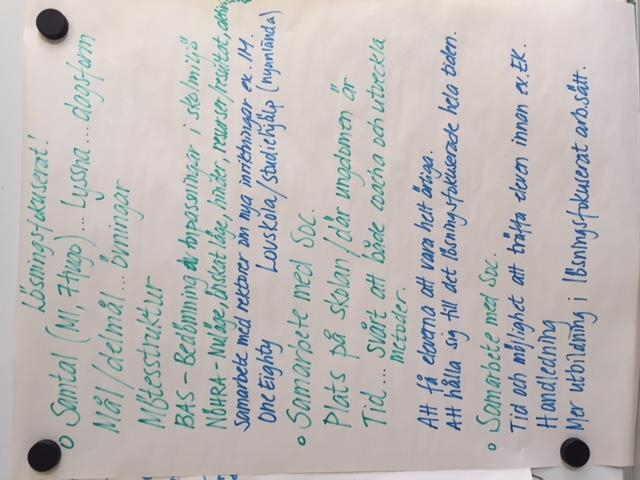 Lösningsfokuserat!
o Samtal (MI, 7tjugo)... Lyssna... dagsform
Mål/delmål... övningar
Mötesstruktur
BAS - Bedömning av anpassningar i skolmiljö
NÖHRA - Nuläge, önskat läge, hinder, resurser/resultat,
Samarbete med rektorer om nya inriktningar ex. IM.
One Eighty Lovskola/studiehjälp (nyanlända)
o Samarbete med Soc.
Plats på skolan/där ungdomen är
Tid... svårt att både coacha och utveckla
metoder.
Att få eleverna att vara helt ärliga.
Att hålla sig till det lösningsfokuserade hela tiden.
o Samarbete med Soc.
Tid och möjlighet att träffa eleven innan ex. EK.
Handledning
Mer utbildning i lösningsfokuserat arb.sätt.